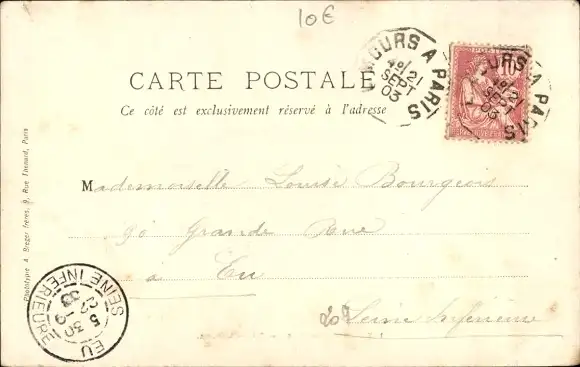 10€
CARTE POSTALE
Ce côté est exclusivement réservé à l'adresse
COURS A PARIS
21
SEPT
03
POSTES
10
COURS A PARIS
Mademoiselle Louise Bourgeois
90 Grande Rue
à Eu
Seine Inférieure
EU
SEINE INFÉRIEURE
5 30
22 - 9
03
Phototypie A. Breger frères, 9, Rue Thénard, Paris